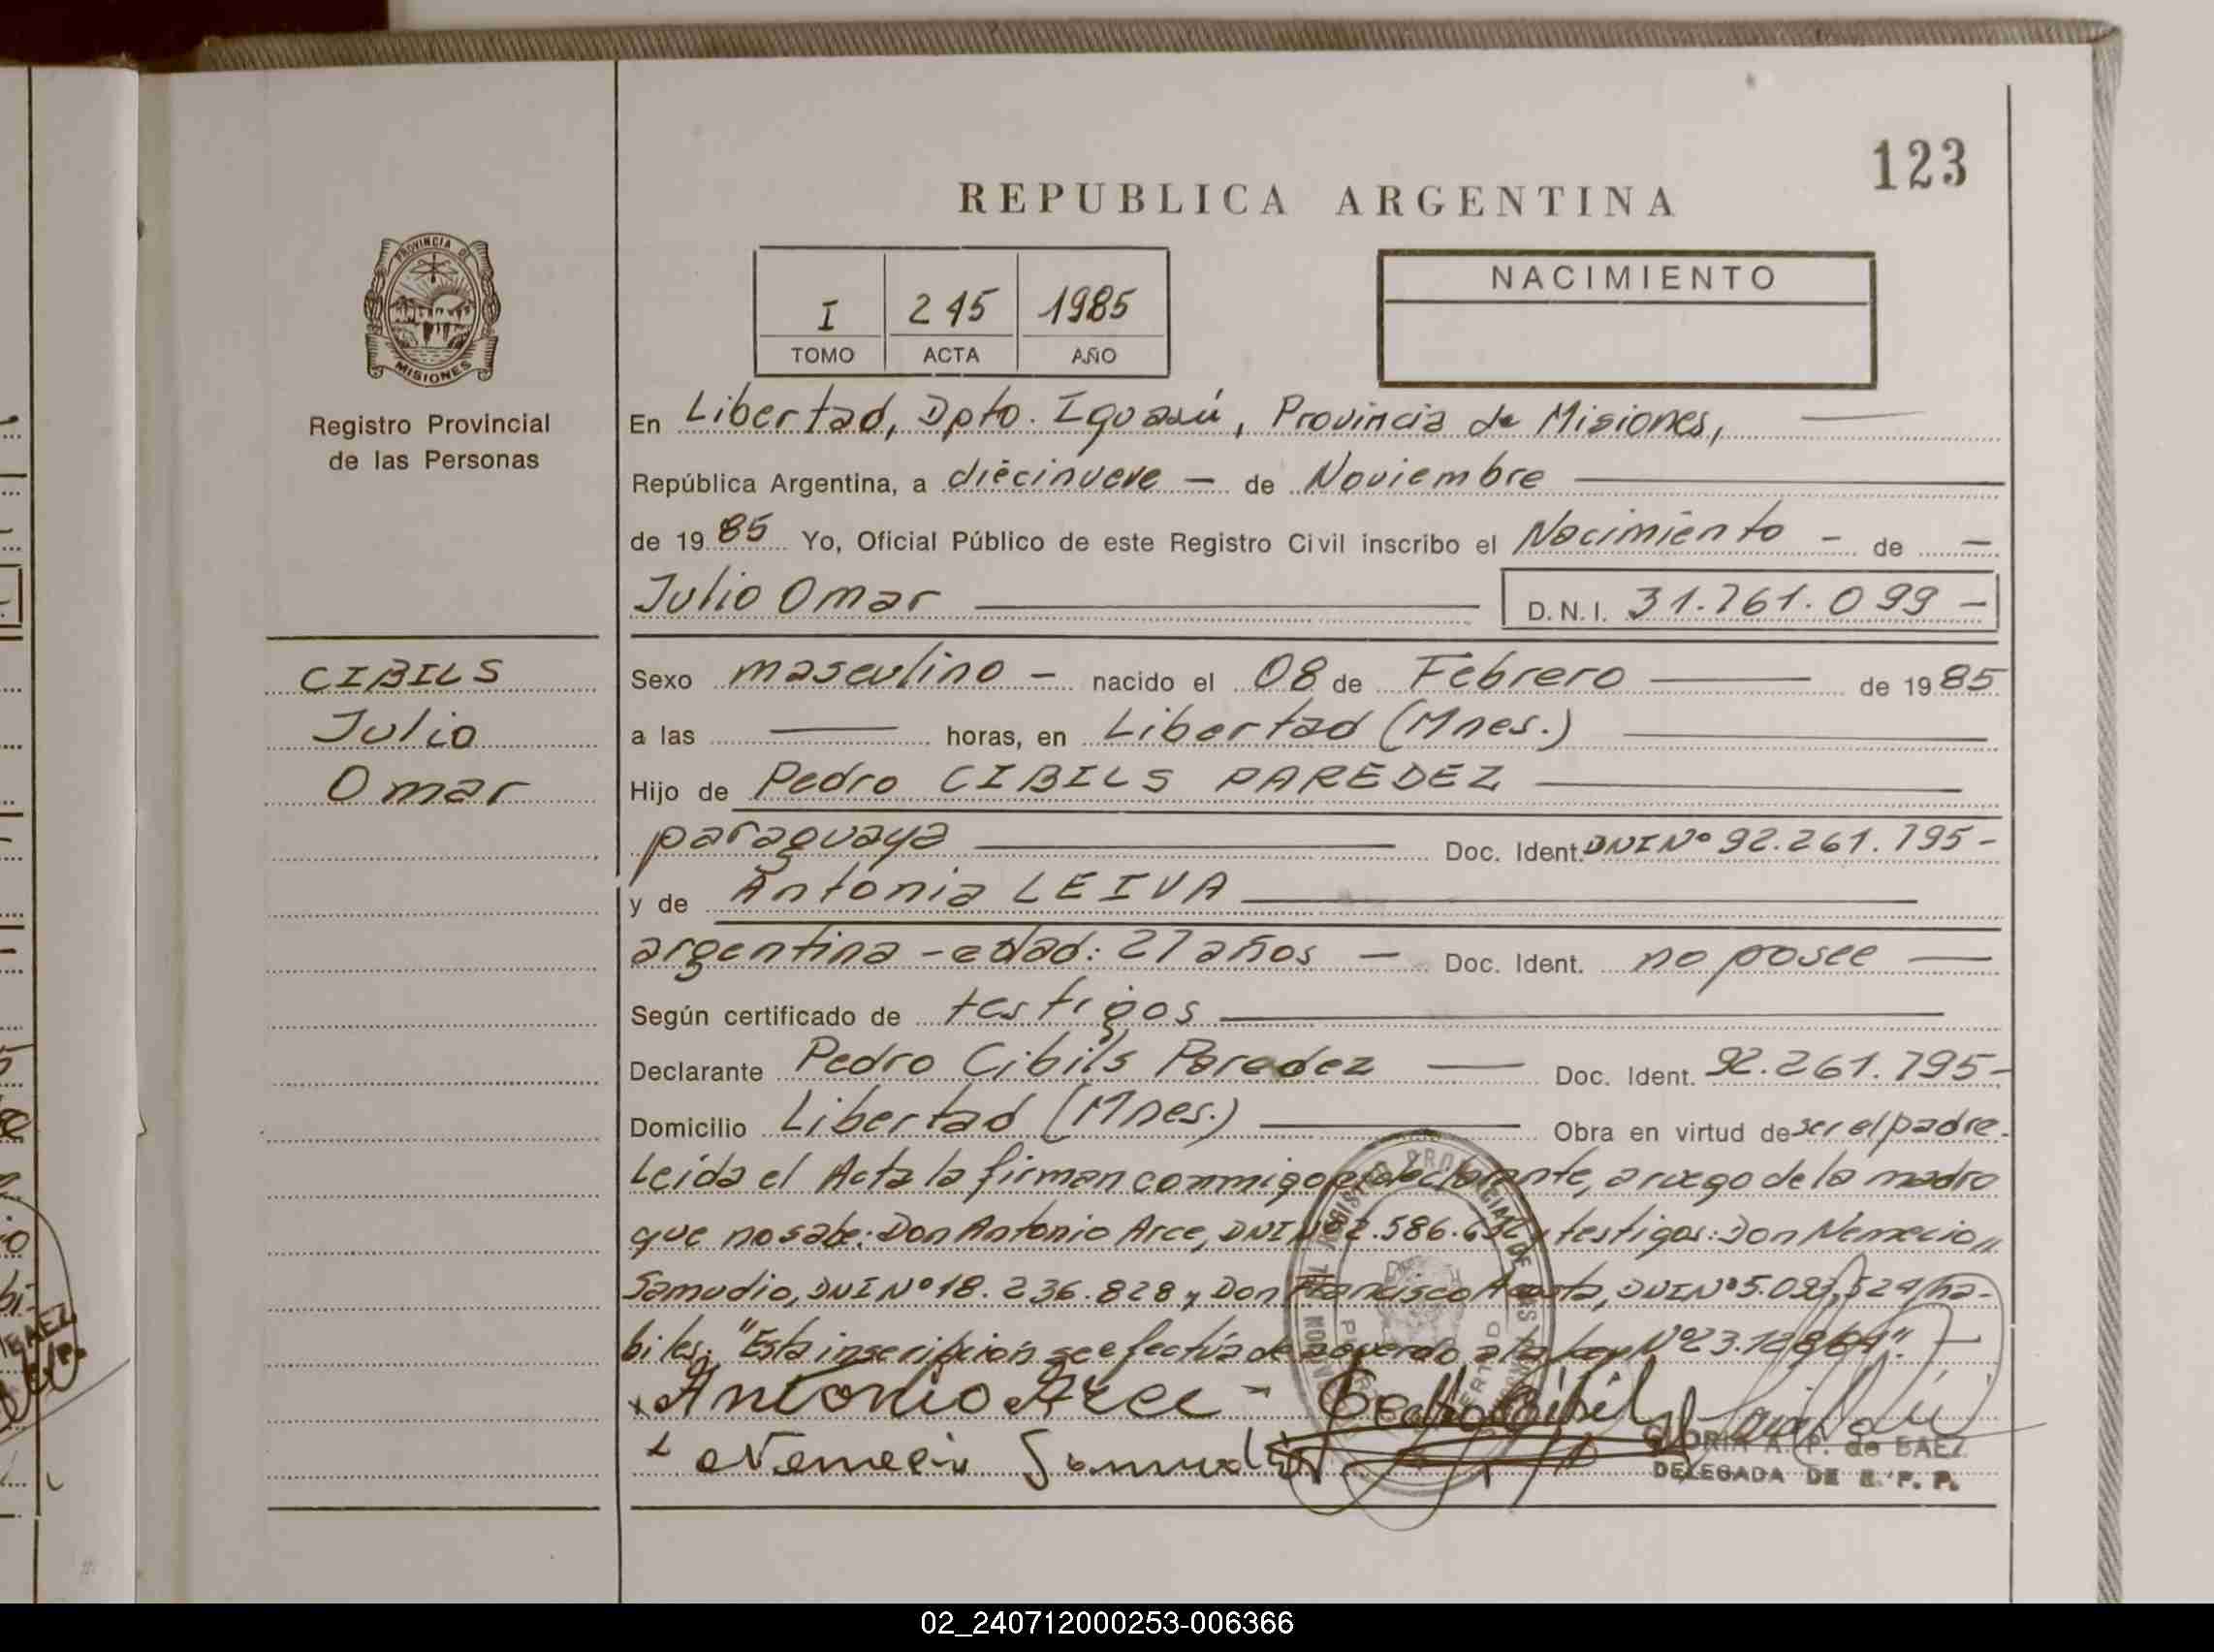 123
REPUBLICA ARGENTINA
PROVINCIA DE
MISIONES
Registro Provincial
de las Personas
I 245 1985
TOMO ACTA AÑO
NACIMIENTO
En Libertad, Dpto. Iguazú, Provincia de Misiones,
República Argentina, a diecinueve - de Noviembre
de 1985 Yo, Oficial Público de este Registro Civil inscribo el Nacimiento - de -
Julio Omar D.N.I. 31.761.099 -
CIBILS
Julio
Omar
Sexo masculino - nacido el 08 de Febrero de 1985
a las — horas, en Libertad (Mnes.)
Hijo de Pedro CIBILS PAREDEZ
paraguaya Doc. Ident. DNI Nº 92.261.795-
y de Antonia LEIVA
argentina - edad: 27 años - Doc. Ident. no posee
Según certificado de testigos
Declarante Pedro Cibils Paredez Doc. Ident. 92.261.795-
Domicilio Libertad (Mnes.) Obra en virtud de ser el padre.
Leida el Acta la firman conmigo el declarante, a ruego de la madre
que no sabe: Don Antonio Arce, DNI y testigos: Don Nemecio
Samudio, DNI Nº 18.236.828 y Don Francisco Acosta, DNI Nº ha-
biles. "Esta inscripcion se efectúa de acuerdo a la Ley Nº 23.128/84".
Antonio Arce - Pedro Cibils
Nemecio Samudio
GLORIA A. P. de BAEZ
DELEGADA DE R. P. P.
BAEZ
02_240712000253-006366